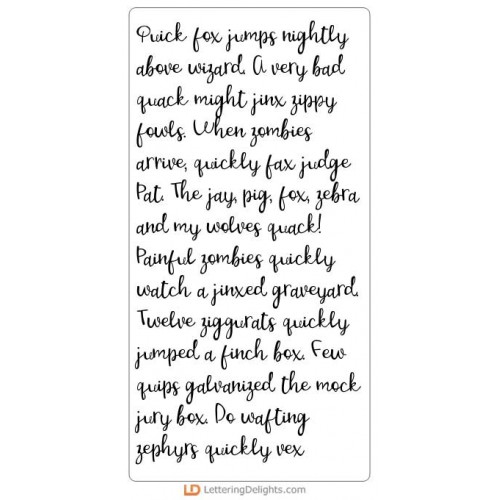 Quick fox jumps nightly
above wizard. A very bad
quack might jinx zippy
fowls. When zombies
arrive, quickly fax judge
Pat. The jay, pig, fox, zebra
and my wolves quack!
Painful zombies quickly
watch a jinxed graveyard.
Twelve ziggurats quickly
jumped a finch box. Few
quips galvanized the mock
jury box. Do wafting
zephyrs quickly vex
LD LetteringDelights.com